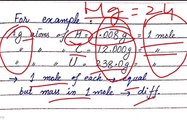 For example : Mg = 24
1g atoms of H = 1.008g = 1 mole
" " " C = 12.000g = "
" " " U = 238.0g = "
→ 1 mole of each → equal
but mass in 1 mole → diff.